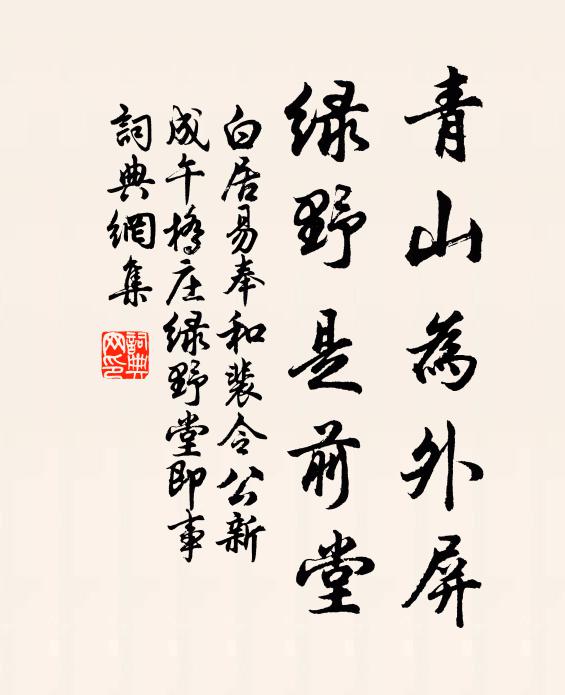 青山為外屏
綠野是前堂
白居易奉和裴令公新
成午橋庄綠野堂即事
詞典網集
詞典
网印